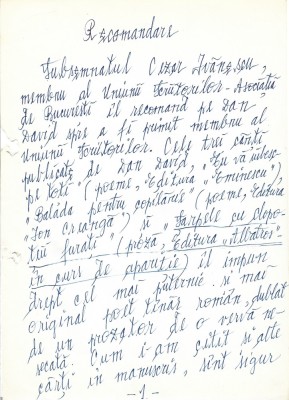 Recomandare
Subsemnatul Cezar Ivănescu,
membru al Uniunii Scriitorilor - Asociația
de București îl recomand pe Dan
David spre a fi primit membru al
Uniunii Scriitorilor. Cele trei cărți
publicate de Dan David, "Eu vă iubesc
pe toți" (poeme, Editura "Eminescu"),
"Balada pentru copilărie" (poeme, Editura
"Ion Creangă") și "Șarpele cu clopo-
ței furați" (proză, Editura "Albatros"-
în curs de apariție) îl impun
drept cel mai puternic și mai
original poet tînăr român, dublat
de un prozator de o vervă ne-
secată. Cum i-am citit și alte
cărți în manuscris, sînt sigur
-1-